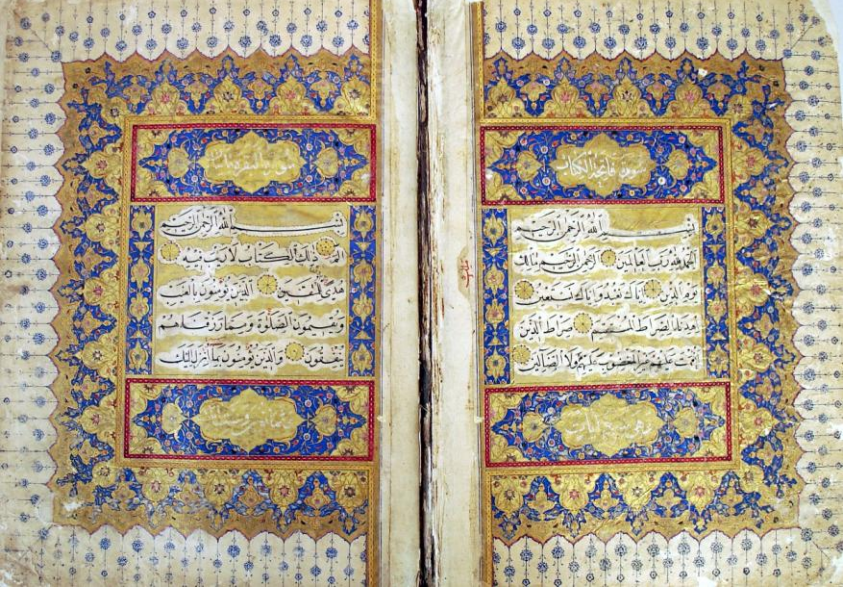 سورة فاتحة الكتاب
بِسْمِ اللهِ الرَّحْمٰنِ الرَّحِيمِ
اَلْحَمْدُ لِلهِ رَبِّ الْعَالَمِينَ الرَّحْمٰنِ الرَّحِيمِ مَالِكِ
يَوْمِ الدِّينِ اِيَّاكَ نَعْبُدُ وَاِيَّاكَ نَسْتَعِينُ
اِهْدِنَا الصِّرَاطَ الْمُسْتَقِيمَ صِرَاطَ الَّذِينَ
اَنْعَمْتَ عَلَيْهِمْ غَيْرِ الْمَغْضُوبِ عَلَيْهِمْ وَلَا الضَّالِّينَ
وهي سبع آيات
سورة البقرة
بِسْمِ اللهِ الرَّحْمٰنِ الرَّحِيمِ
الٓمٓ ذٰلِكَ الْكِتَابُ لَا رَيْبَ فِيهِ
هُدًى لِلْمُتَّقِينَ الَّذِينَ يُؤْمِنُونَ بِالْغَيْبِ
وَيُقِيمُونَ الصَّلٰوةَ وَمِمَّا رَزَقْنَاهُمْ
يُنْفِقُونَ وَالَّذِينَ يُؤْمِنُونَ بِمَا اُنْزِلَ اِلَيْكَ